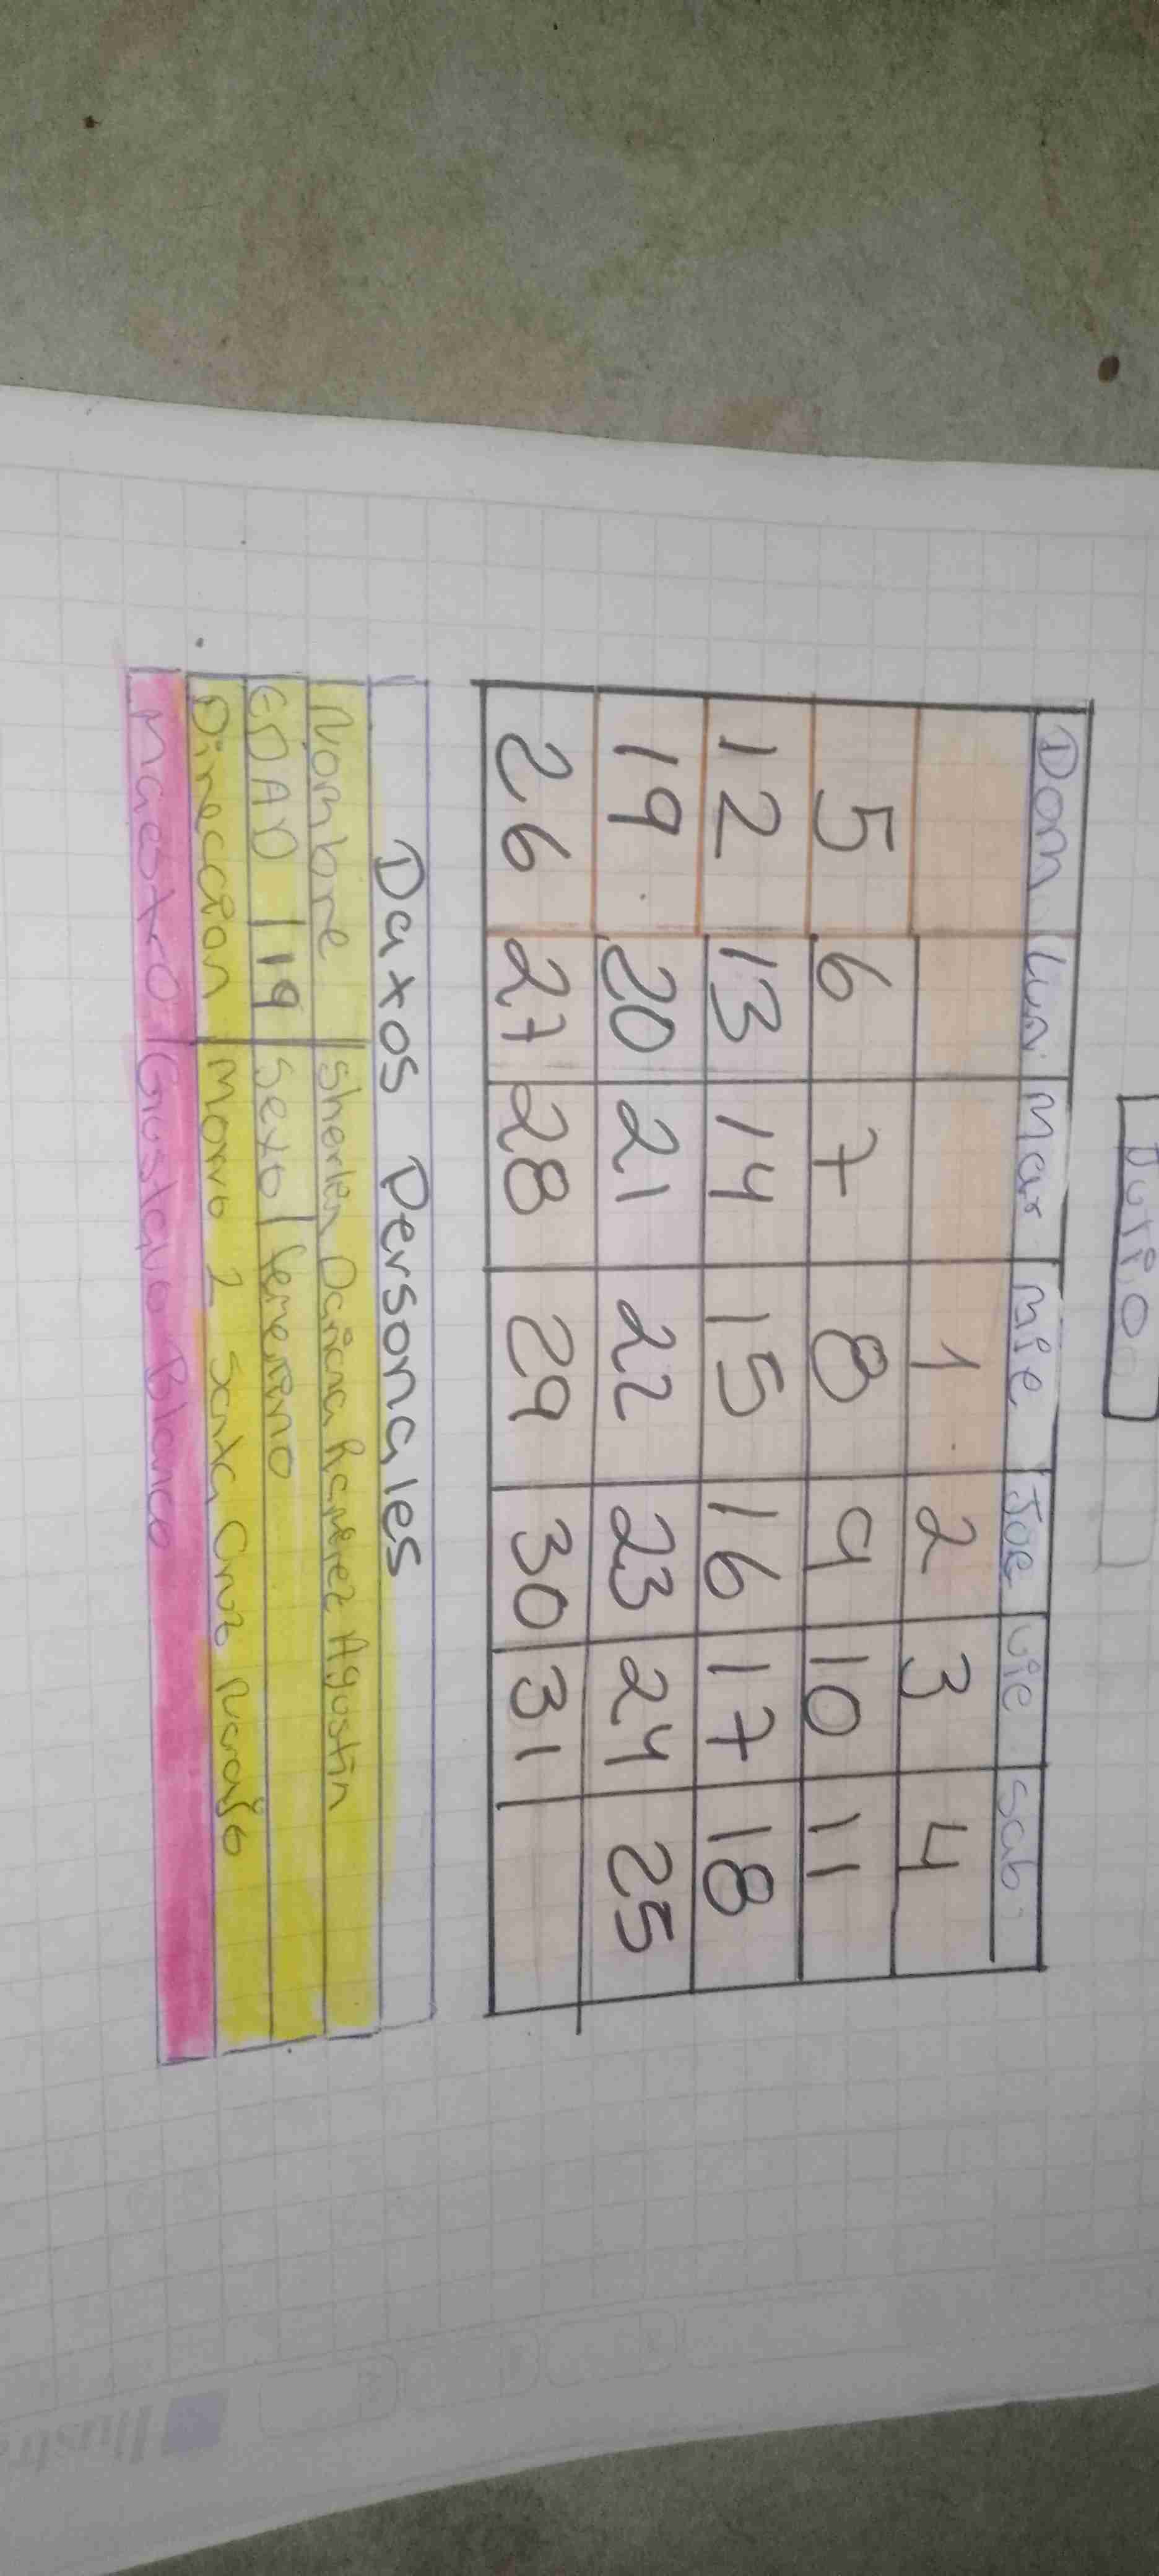 Julio
Dom Lun Mar Mie Joe Vie Sab.
1 2 3 4
5 6 7 8 9 10 11
12 13 14 15 16 17 18
19 20 21 22 23 24 25
26 27 28 29 30 31
Datos Personales
Nombre Sherlen Dariana Ramirez Agustin
EDAD 19 Sexo femenino
Dirección Morro 2 Santa Cruz Naranjo
Maestro Gustavo Blanco